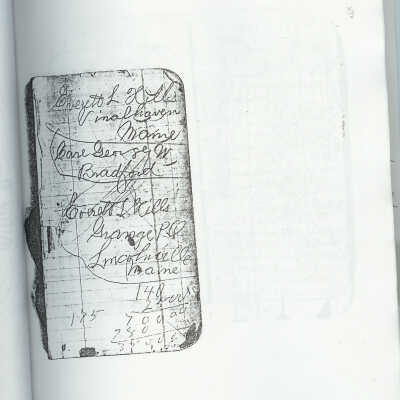 Everett L Hills
inalhaven
Maine
Care George W
Bradford
Everett L Hills
Grange P.O.
Lincolnville
Maine
140
175 700
280